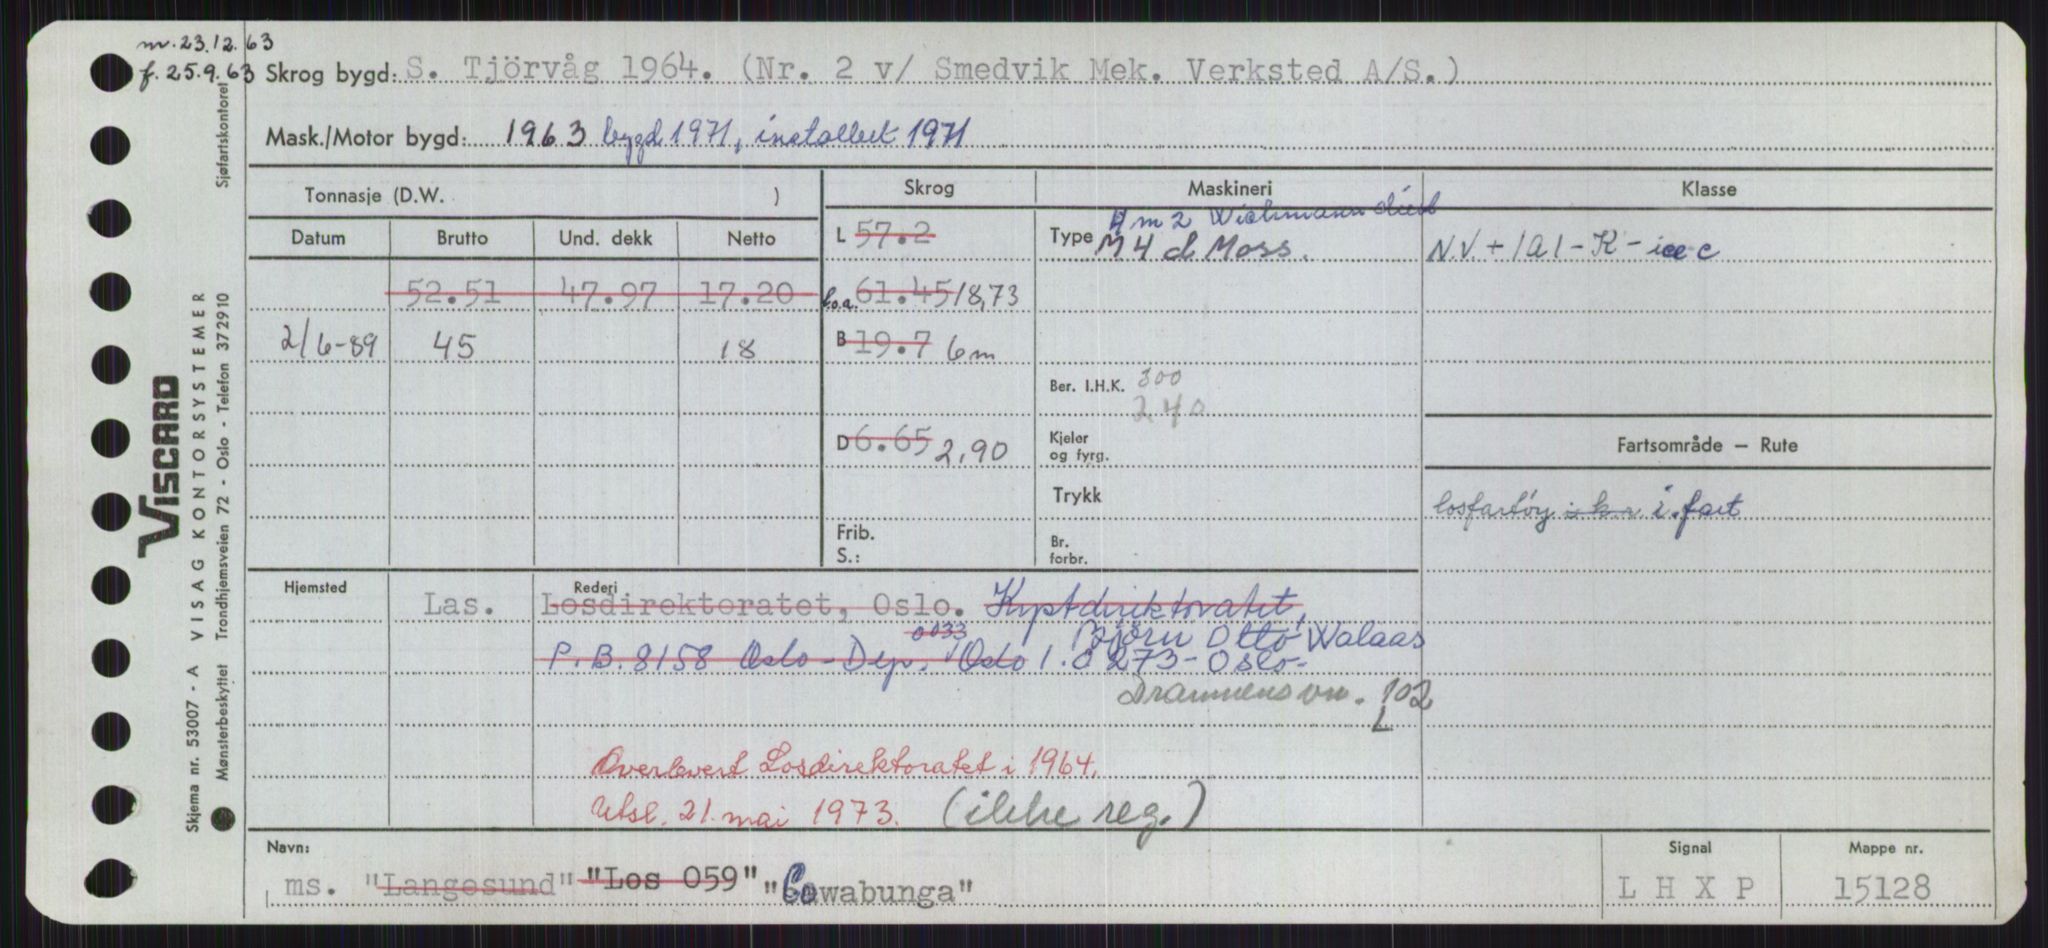 m. 23.12.63
f. 25.9.63 Skrog bygd: S. Tjörvåg 1964. (Nr. 2 v/ Smedvik Mek. Verksted A/S.)
Mask./Motor bygd: 1963 bygd 1971, installert 1971
Tonnasje (D.W. )
Skrog Maskineri Klasse
Datum Brutto Und. dekk Netto
L 57.2
4 m 2 Wichmann diesel
Type M 4 d Moss.
N.V. + 1A1 - K - ice c
52.51 47.97 17.20
l.o.a. 61.45 18,73
2/6-89 45 18
B 19.7 6m
Ber. I.H.K. 300
240
D 6.65 2,90
Kjeler
og fyrg.
Fartsområde – Rute
Trykk
losfartøy i k.r i. fart
Frib.
S.:
Br.
forbr.
Hjemsted Rederi
Las. Losdirektoratet, Oslo. Kystdirektoratet,
0033 Bjørn Otto Walaas
P.B. 8158 Oslo - Dep. Oslo 1. 0273 - Oslo -
Drammensvn. 102
L
Overlevert Losdirektoratet i 1964.
Utsl. 21. mai 1973. (ikke reg.)
Navn: Signal Mappe nr.
ms. "Langesund" "Los 059" "Cowabunga" L H X P 15128
Sjøfartskontoret
VISCARD
Skjema nr. 53007 - A VISAG KONTORSYSTEMER
Mønsterbeskyttet Trondhjemsveien 72 - Oslo - Telefon 372910